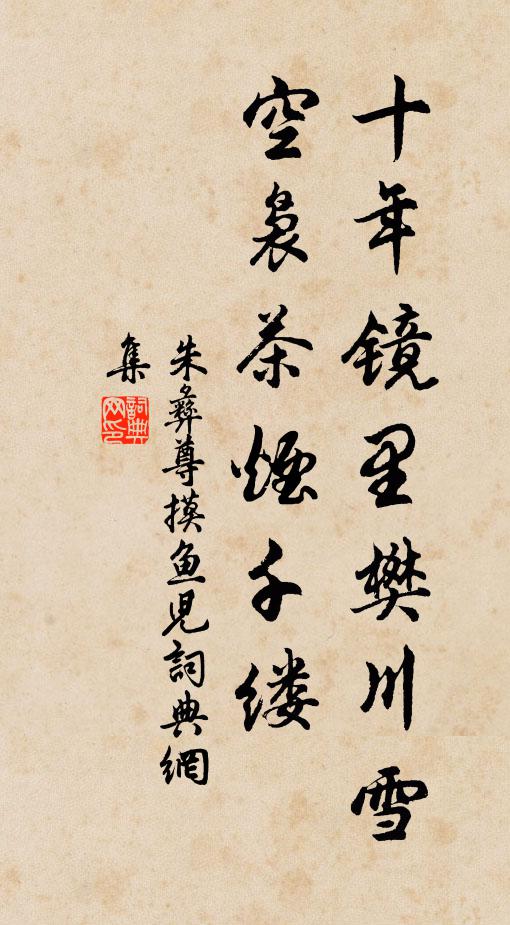 十年镜里樊川雪
空袅茶烟千缕
朱彝尊摸鱼儿词典網
集
詞典网印